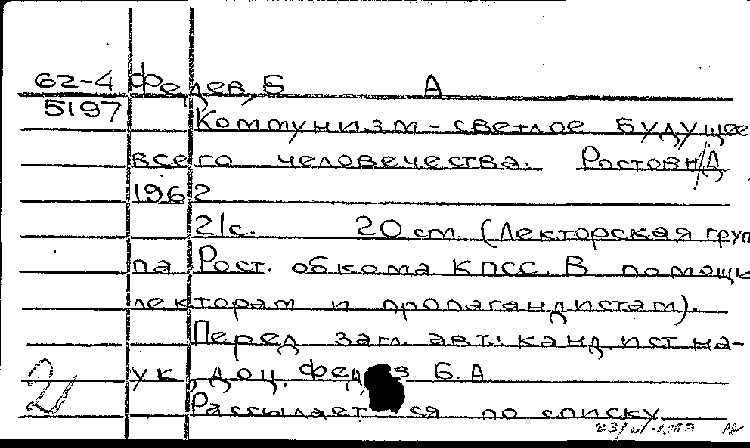 62-4 Федев, Б А
5197
Коммунизм - светлое будущее
всего человечества. Ростов н/Д
1962
21с. 20 см. (Лекторская груп
па Рост. обкома КПСС. В помощь
лекторам и пропагандистам).
Перед загл. авт.: канд ист на-
ук, доц. Б.А
Рассылается по списку.